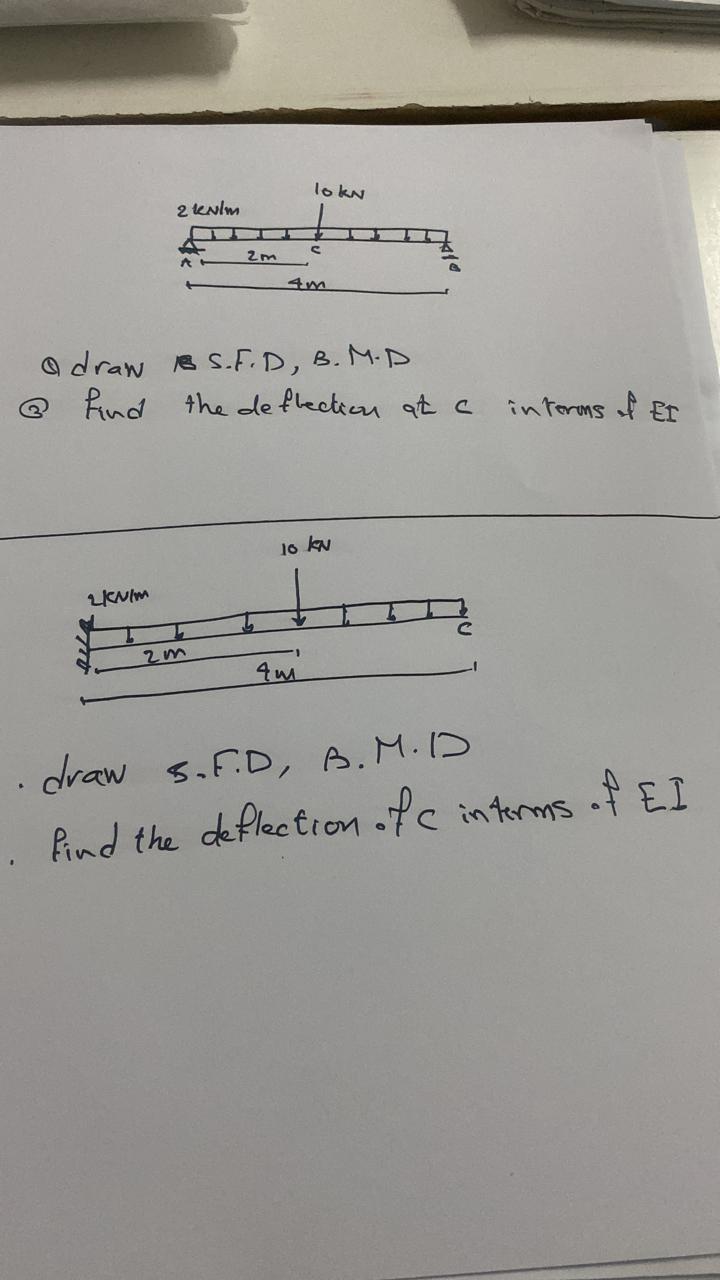 10 kN
2 kN/m
C
A
2m
B
4m
① draw S.F.D, B.M.D
② find the deflection at c interms of EI
10 kN
2kN/m
C
2m
4m
. draw S.F.D, B.M.D
. find the deflection of c interms of EI